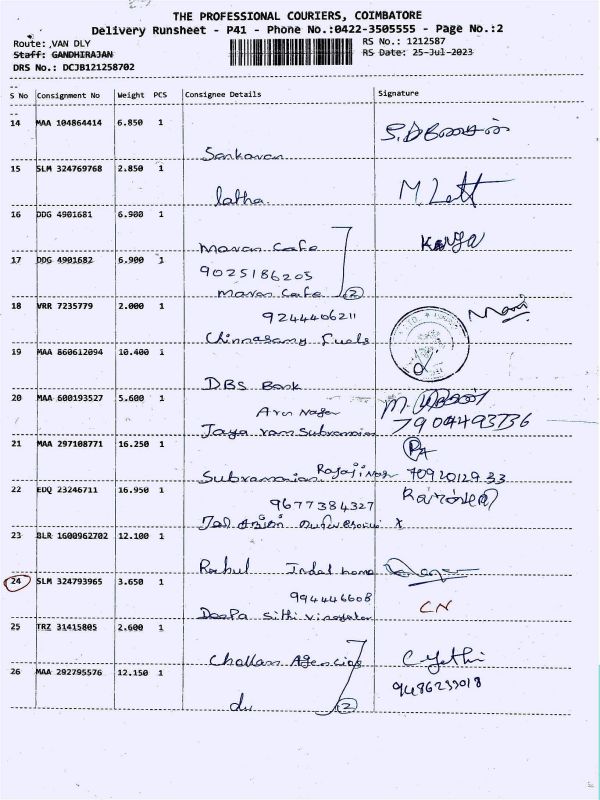 THE PROFESSIONAL COURIERS, COIMBATORE
Delivery Runsheet - P41 - Phone No.:0422-3505555 - Page No.:2
Route: ,VAN DLY RS No.: 1212587
Staff: GANDHIRAJAN RS Date: 25-Jul-2023
DRS No.: DCJB121258702
S No Consignment No Weight PCS Consignee Details Signature
14 MAA 104864414 6.850 1
Sankaran
15 SLM 324769768 2.850 1
latha
16 DDG 4901681 6.900 1
Maran Cafe
17 DDG 4901682 6.900 1
9025186205
Maran Cafe 2
18 VRR 7235779 2.000 1
9244406211
Chinnasamy Fuels
19 MAA 860612094 10.400 1
DBS Bank
20 MAA 600193527 5.600 1
Arun Nagar 7904493736
Jaya ram Subramanian
21 MAA 297108771 16.250 1
Subramanian Rajaji Nagar 7092012933
22 EDQ 23246711 16.950 1
9677384327
23 BLR 1600962702 12.100 1
Rahul
24 SLM 324793965 3.650 1
994446608 CN
Deepa Sithi Vinayagar
25 TRZ 31415805 2.600 1
Chellam Agencies
26 MAA 292795576 12.150 1
9486233018
du 2